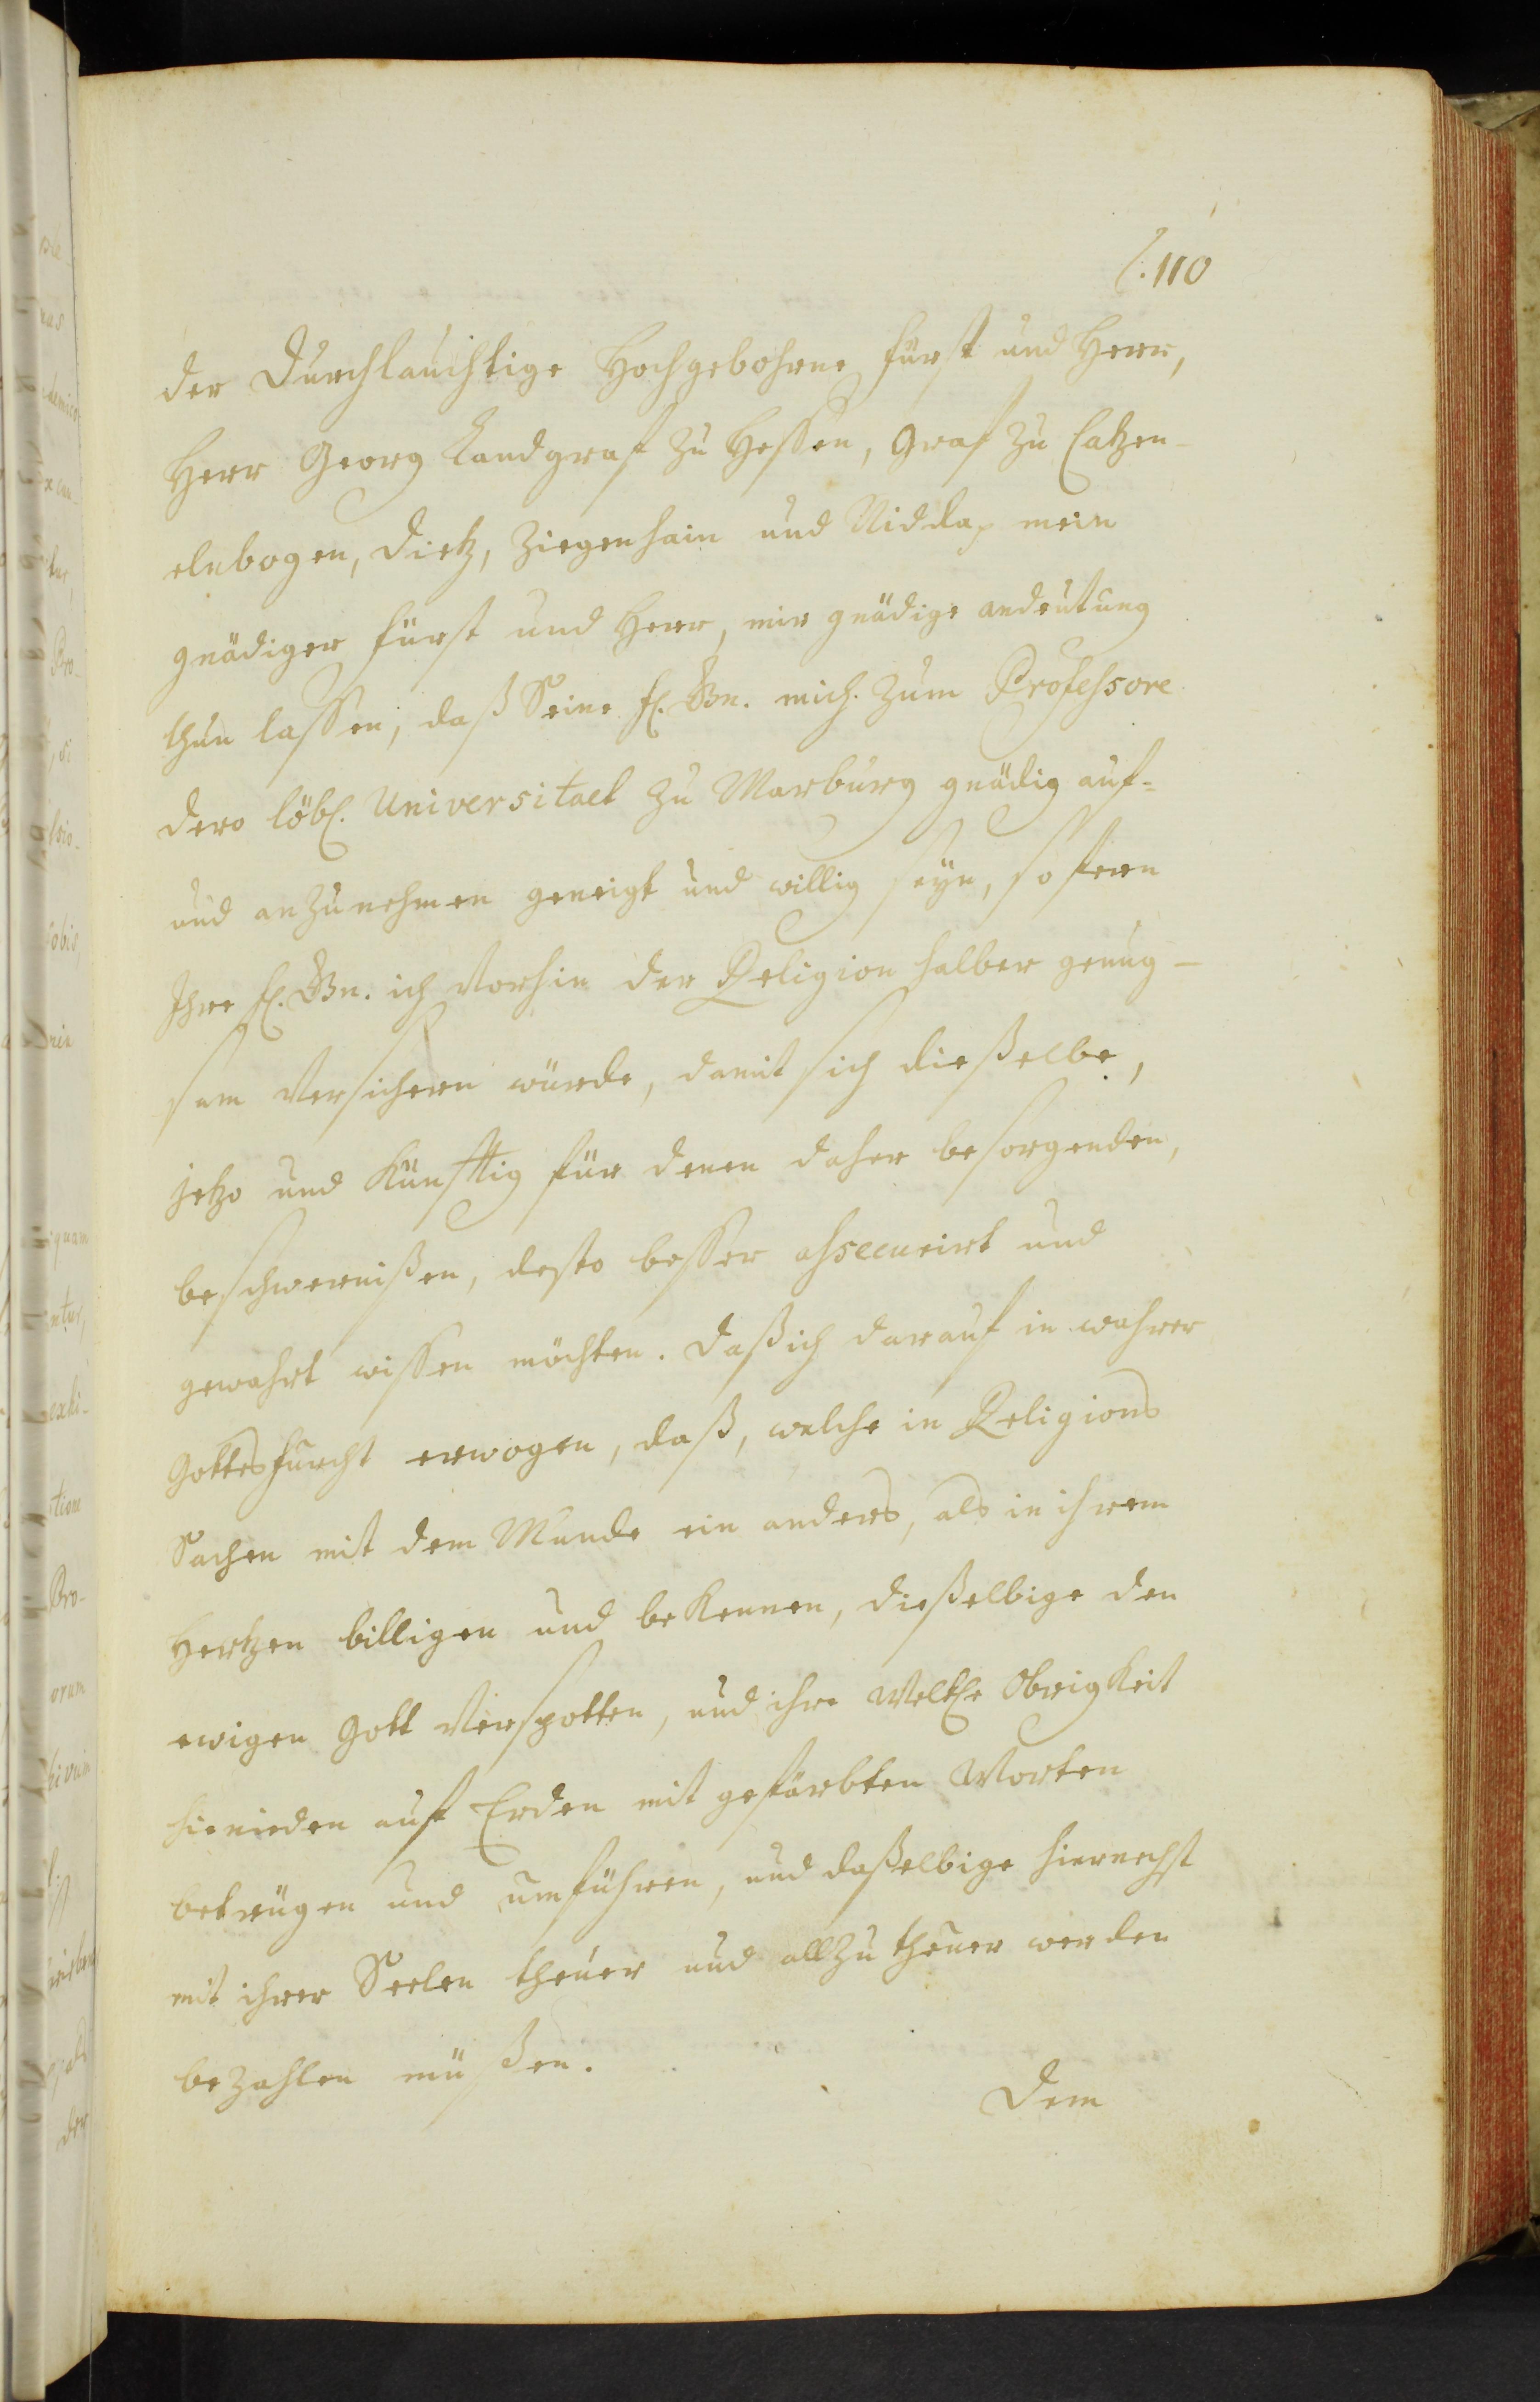 110
der Durchlauchtige Hochgebohrne Fürst und Herr,
Herr Georg Landgraf zu Hessen, Graf zu Catzen-
elnbogen, Dietz, Ziegenhain und Nidda, mein
gnädiger Fürst und Herr, mir gnädige andeutung
thun lassen, daß Seine fl. Gn. mich zum Professore
dero löbl. Universitaet zu Marburg gnädig auf-
und anzunehmen geneigt und willig seyn, so fern
Ihre fl. Gn. ich Vorhin der Religion halber genug-
sam Versichern würde, damit sich dieselbe,
jetzo und Künfftig für denen daher besorgenden,
beschwernißen, desto besser assecurirt und
gewahrt wissen möchten. Daß ich darauf in wahrer
Gottesfurcht erwogen, daß, welche in Religions
Sachen mit dem Munde ein anders, als in ihrem
Hertzen billigen und beKennen, dieselbige den
ewigen Gott Verspotten, und ihre Weltle Obrigkeit
hienieden auf Erden mit gefärbten Worten
betrügen und umführen, und daßelbige hiernechst
mit ihrer Seelen theuer und allzu theuer werden
bezahlen müßen.
Dem